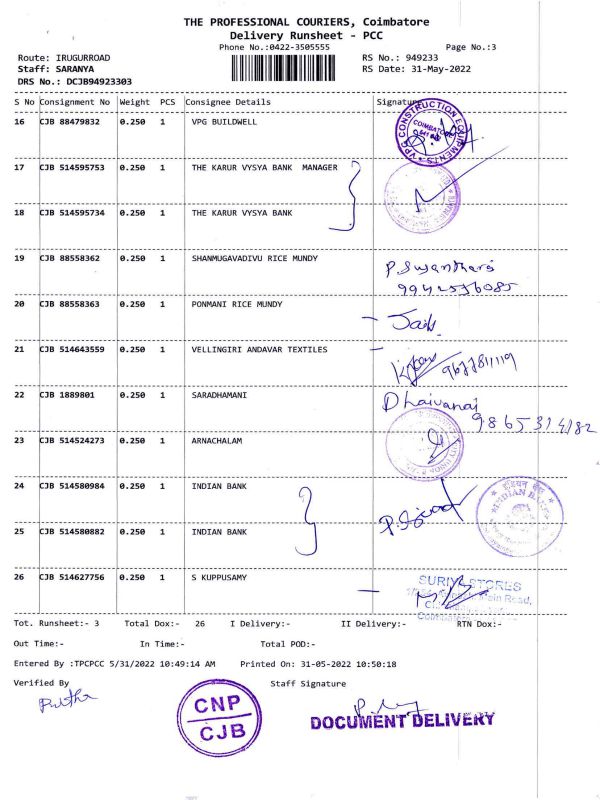 THE PROFESSIONAL COURIERS, Coimbatore
Delivery Runsheet - PCC
Phone No.:0422-3505555 Page No.:3
Route: IRUGURROAD RS No.: 949233
Staff: SARANYA RS Date: 31-May-2022
DRS No.: DCJB94923303
S No Consignment No Weight PCS Consignee Details Signature
16 CJB 88479832 0.250 1 VPG BUILDWELL
VPG CONSTRUCTION EQUIPMENTS
COIMBATORE
17 CJB 514595753 0.250 1 THE KARUR VYSYA BANK MANAGER
18 CJB 514595734 0.250 1 THE KARUR VYSYA BANK
19 CJB 88558362 0.250 1 SHANMUGAVADIVU RICE MUNDY
20 CJB 88558363 0.250 1 PONMANI RICE MUNDY
21 CJB 514643559 0.250 1 VELLINGIRI ANDAVAR TEXTILES
22 CJB 1889801 0.250 1 SARADHAMANI
Dhaivanai
23 CJB 514524273 0.250 1 ARNACHALAM
24 CJB 514580984 0.250 1 INDIAN BANK
इंडियन बैंक
INDIAN BANK
25 CJB 514580882 0.250 1 INDIAN BANK
26 CJB 514627756 0.250 1 S KUPPUSAMY
SURIYA STORES
Main Road,
Tot. Runsheet:- 3 Total Dox:- 26 I Delivery:- II Delivery:- RTN Dox:-
Out Time:- In Time:- Total POD:-
Entered By :TPCPCC 5/31/2022 10:49:14 AM Printed On: 31-05-2022 10:50:18
Verified By Staff Signature
CNP
CJB
DOCUMENT DELIVERY